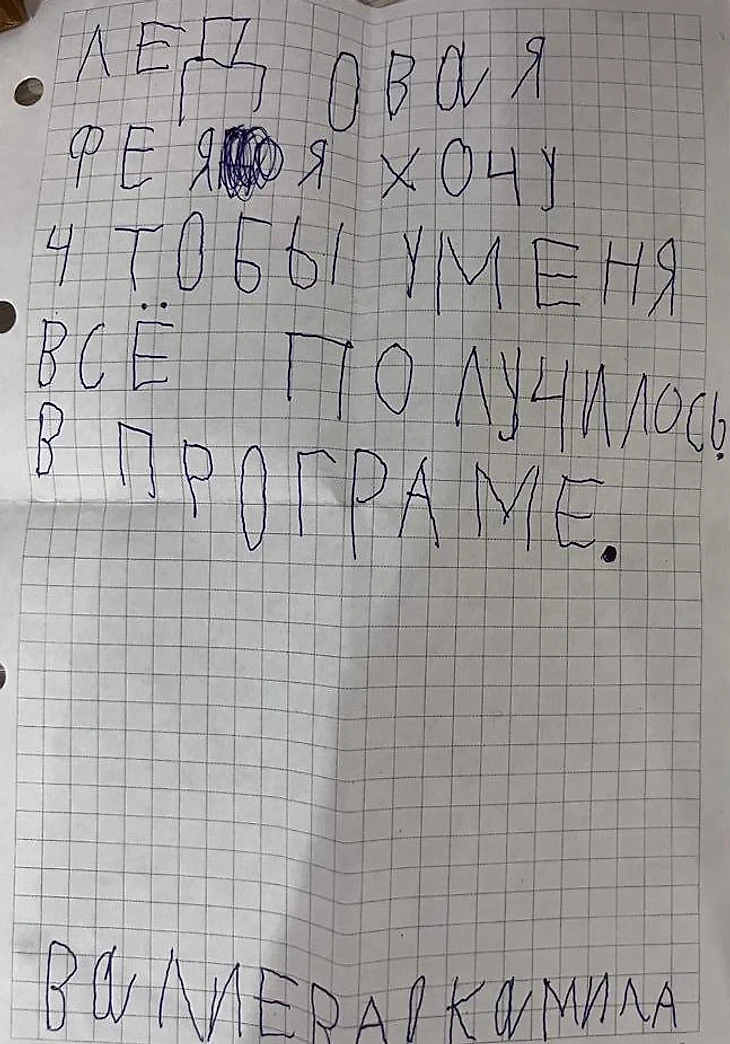 ЛЕДОВАЯ
ФЕЯ Я ХОЧУ
ЧТОБЫ УМЕНЯ
ВСЁ ПОЛУЧИЛОСЬ
В ПРОГРАМЕ.
КАМИЛА